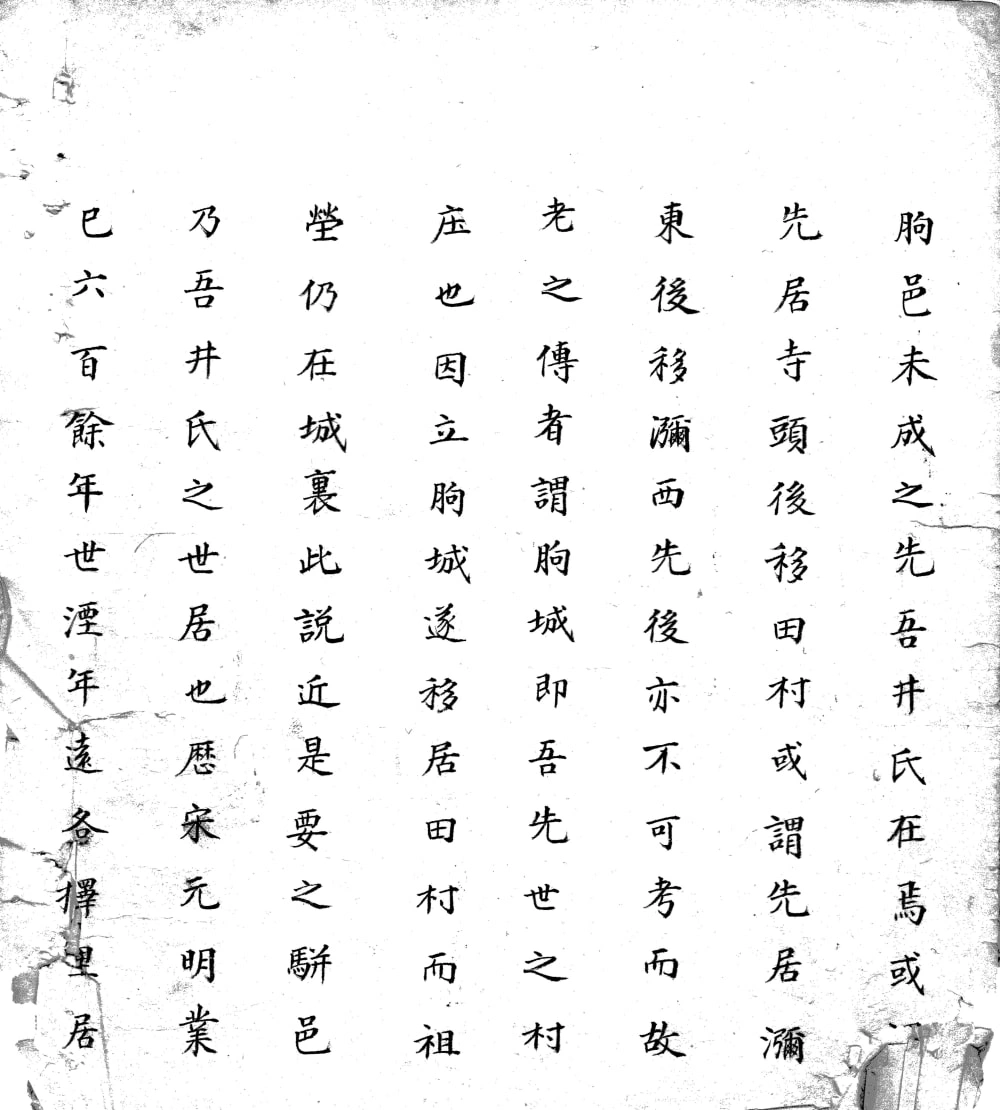 朐邑未成之先吾井氏在焉或
先居寺頭後移田村或謂先居瀰
東後移瀰西先後亦不可考而故
老之傳者謂朐城即吾先世之村
庄也因立朐城遂移居田村而祖
塋仍在城裏此説近是要之駢邑
乃吾井氏之世居也歷宋元明業
已六百餘年世湮年遠各擇里居